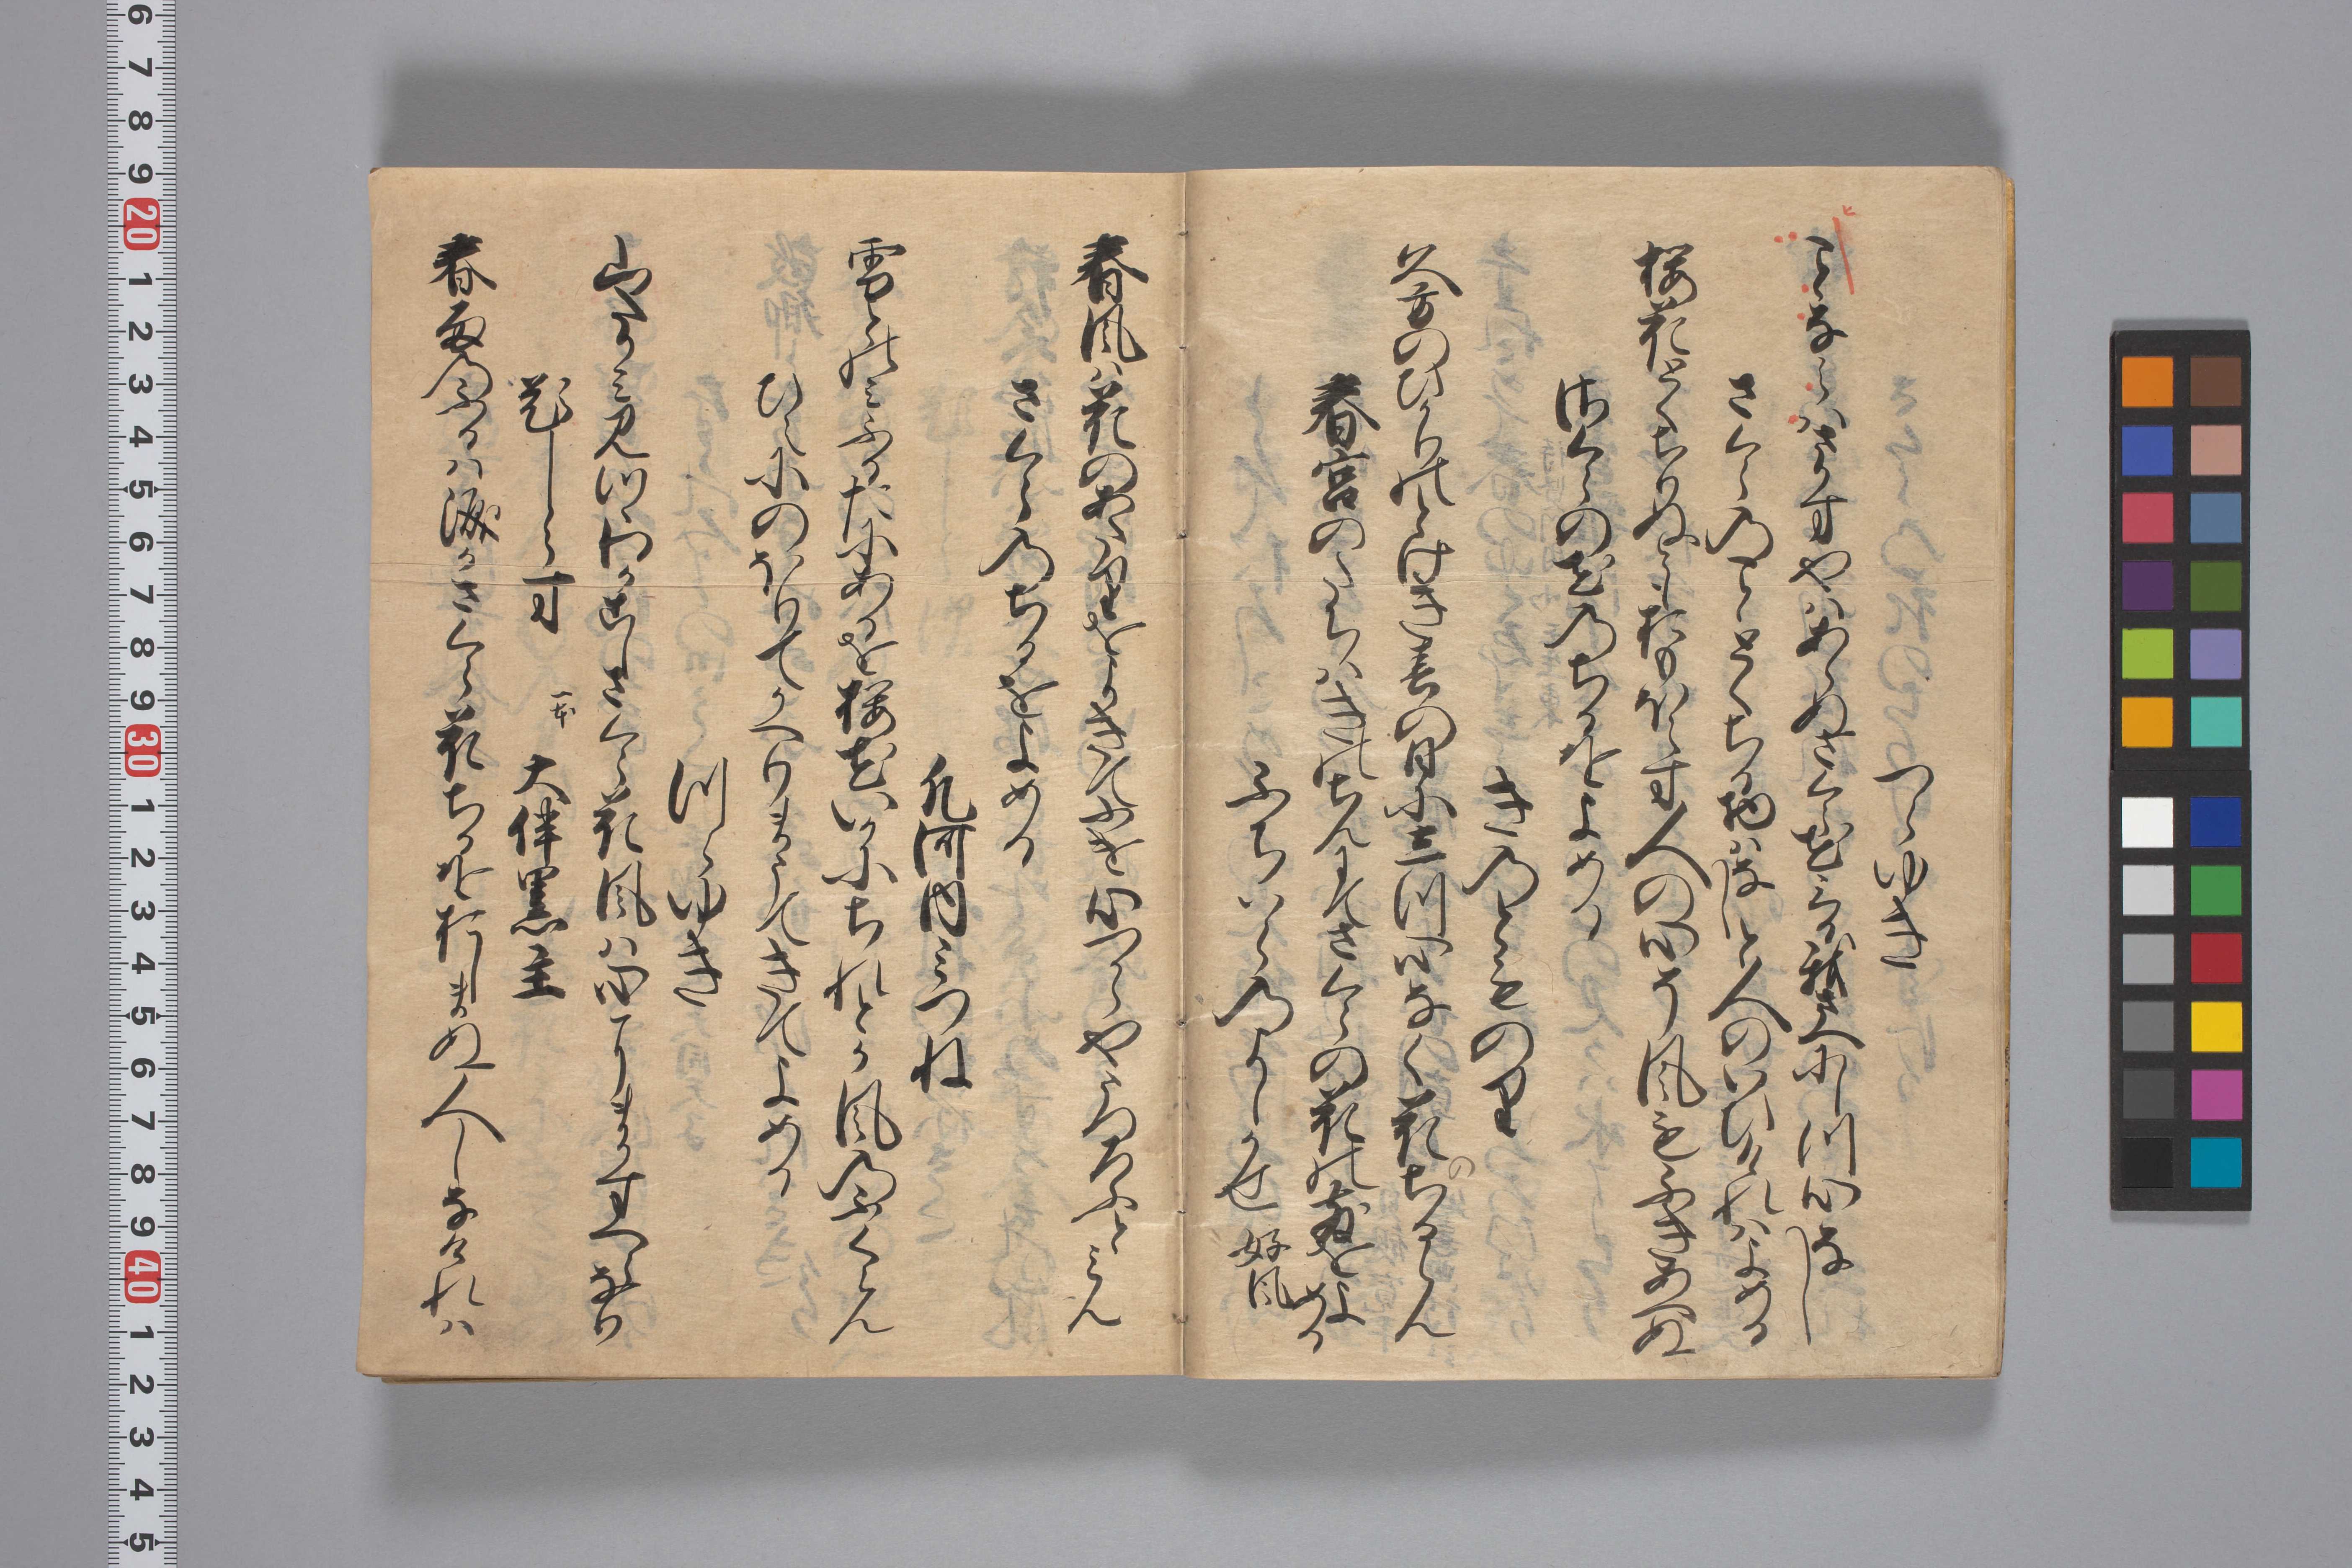 つらゆき
ことならはさかすやはあらぬさくら花みる我さへにしつ心なし
さくらのことくちる物はなしと人のいひけれはよめる
桜花とくちりぬともおもほえす人の心そ風もふきあへぬ
さくらの花のちるをよめる
きのとものり
久方のひかりのとけき春の日にしつ心なく花のちるらん
春宮のたちはきのちんにてさくらの花のちるをよめる
ふちはらのよしかせ 好風
春風は花のあたりをよきてふけ心つからやうつろふとみん
さくらのちるをよめる
凡河内みつね
雪とのみふるたにあるを桜花いかにちれとか風のふくらん
ひえにのほりてかへりまうてきてよめる
つらゆき
山たかみ見つゝわかこしさくら花風は心にまかすへらなり
題しらす 一本 大伴黒主
春雨のふるは涙かさくら花ちるをおしまぬ人しなけれは